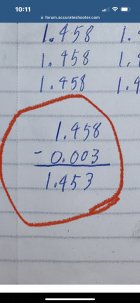 10:11
forum.accurateshooter.com
1.458 1.
1.458 1.
1.458 1.4
1.458
- 0.003
1.453